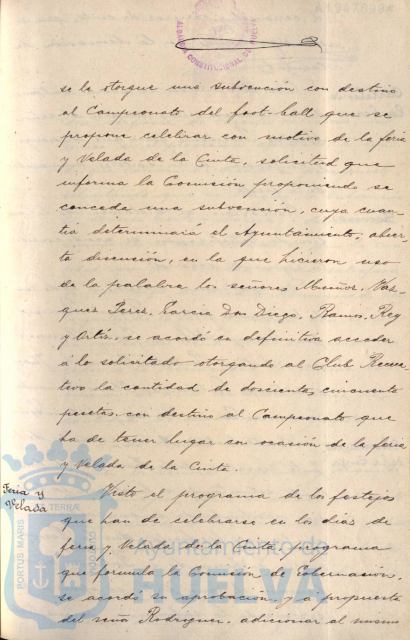 ALCALDIA CONSTITUCIONAL DE HUELVA
se le otorgue una subvención con destino
al Campeonato del foot-ball que se
propone celebrar con motivo de la feria
y Velada de la Cinta, solicitud que
informa la Comisión proponiendo se
conceda una subvención, cuya cuan-
tia determinará el Ayuntamiento, abier-
ta discusión, en la que hicieron uso
de la palabra los señores Muñoz, Vaz-
quez Perez, Garcia Don Diego, Ramos, Rey
y Ortiz, se acordó en definitiva acceder
á lo solicitado otorgando al Club Recrea-
tivo la cantidad de doscientas cincuenta
pesetas, con destino al Campeonato que
ha de tener lugar con ocasión de la feria
y Velada de la Cinta.
Feria y
Velada
Visto el programa de los festejos
que han de celebrarse en los dias de
feria y Velada de la Cinta, programa
que formula la Comisión de Gobernación,
se acordó su aprobación y á propuesta
del señor Rodriguez, adicionar al mismo
PORTUS MARIS
TERRAE
CUSTODIO
Ayuntamiento de
HUELVA